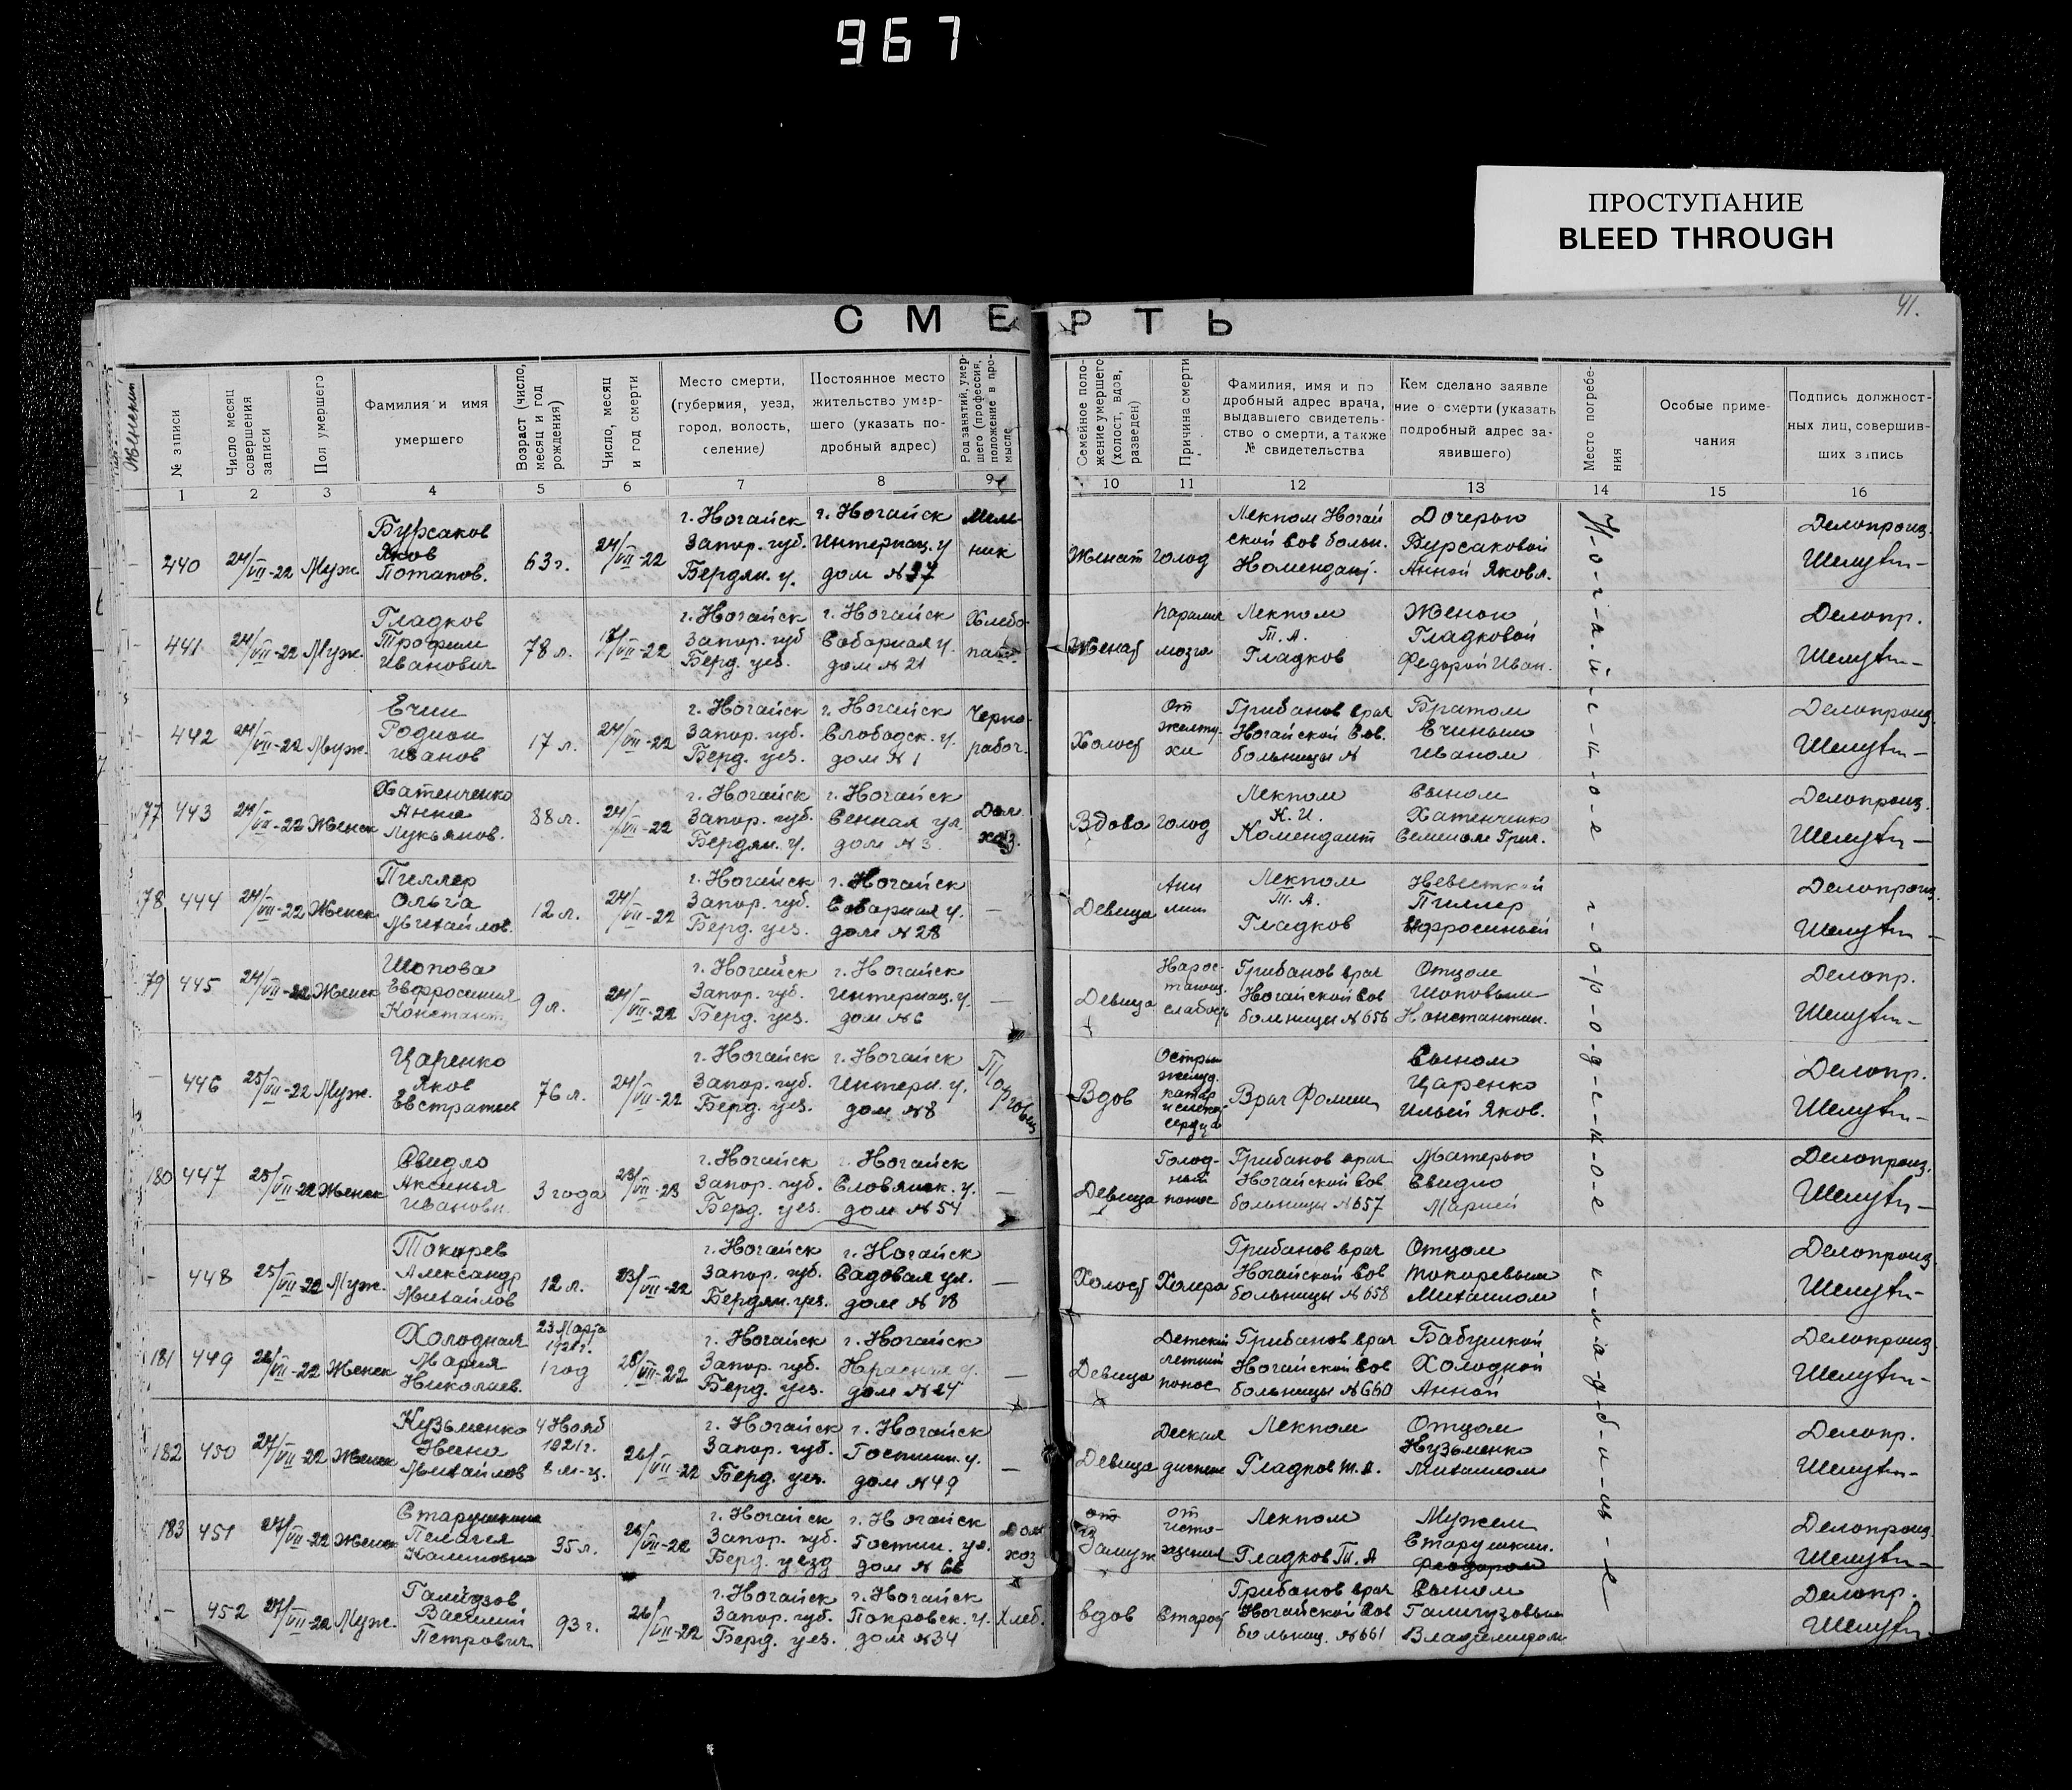 967
ПРОСТУПАНИЕ
BLEED THROUGH
41.
СМЕРТЬ
Женский
№ записи
Число месяц совершения записи
Пол умершего
Фамилия и имя умершего
Возраст (число, месяц и год рождения)
Число, месяц и год смерти
Место смерти, (губерния, уезд, город, волость, селение)
Постоянное место жительство умершего (указать подробный адрес)
Род занятий, умершего (профессия, положение в промысле
Семейное положение умершего (холост, вдов, разведен)
Причина смерти
Фамилия, имя и подробный адрес врача, выдавшего свидетельство о смерти, а также № свидетельства
Кем сделано заявление о смерти (указать подробный адрес заявившего)
Место погребения
Особые примечания
Подпись должностных лиц, совершивших запись
1 2 3 4 5 6 7 8 9 10 11 12 13 14 15 16
440 24/VII-22 Муж. Бурсаков Яков Потапов. 63 г. 24/VII-22 г. Ногайск Запор. губ. Бердян. у. г. Ногайск Интернац. у дом № 37 Мельник Женат голод Лекпом Ногайской Сов больн. Комендант. Дочерью Бурсаковой Анной Яковл. Делопроиз.
441 24/VII-22 Муж. Гладков Трофим Иванович 78 л. 17/VII-22 г. Ногайск Запор. губ Берд. уез. г. Ногайск Соборная у. дом № 21 Женат мозга Лекпом Т. А. Гладков Женою Гладковой Федорой Иван. Делопр.
442 24/VII-22 Муж. Ечин Родион Иванов 17 л. 24/VII-22 г. Ногайск Запор. губ. Берд. уез. г. Ногайск Слободск. у. дом № 1 Чернорабоч. Холост От желтухи Грибанов врач Ногайской Сов. больницы № Братом Ечиным Иваном Делопроиз.
177 443 24/VII-22 Женск Хатенченко Анна Лукьянов. 88 л. 24/VII-22 г. Ногайск Запор. губ. Бердян. у. г. Ногайск Сенная ул. дом № 3 Дом. хоз. Вдова голод Лекпом К. И. Комендант Сыном Хатенченко Семеном Григ. Делопроиз.
178 444 24/VII-22 Женск Пиллер Ольга Михайлов. 12 л. 24/VII-22 г. Ногайск Запор. губ. Берд. уез. г. Ногайск Соборная у. дом № 28 — Девица Лекпом Т. А. Гладков Невесткой Пиллер Ефросиньей Делопроиз.
179 445 24/VII-22 Женск Шопова Евфросиния Констант. 9 л. 24/VII-22 г. Ногайск Запор. губ. Берд. уез. г. Ногайск Интернац. у. дом № 6 — Девица слабость Грибанов врач Ногайской Сов больницы № 656 Отцом Шоповым Константин. Делопр.
446 25/VII-22 Муж. Царенко Яков Евстратиев 76 л. 24/VII-22 г. Ногайск Запор. губ. Берд. уез. г. Ногайск Интерн. у. дом № 8 Торговец Вдов Острый желуд. катар сердца Врач Фомин Сыном Царенко Ильей Яков. Делопр.
180 447 25/VII-22 Женск Свидло Аксинья Ивановн. 3 года 23/VII-23 г. Ногайск Запор. губ. Берд. уез. г. Ногайск Словянск. у. дом № 54 — Девица Голодный понос Грибанов врач Ногайской Сов больницы № 657 Матерью Свидло Марией Делопроиз.
448 25/VII-22 Муж. Токарев Александр Михайлов 12 л. 23/VII-22 г. Ногайск Запор. губ. Бердян. уез. г. Ногайск Садовая ул. дом № 18 — Холост Холера Грибанов врач Ногайской Сов больницы № 658 Отцом Токаревым Михаилом Делопроиз.
181 449 26/VII-22 Женск Холодная Мария Николаев. 23 Марта 1921 г. 1 год 25/VII-22 г. Ногайск Запор. губ. Берд. уез. г. Ногайск Красная у. дом № 24 — Девица Детский летний понос Грибанов врач Ногайской Сов больницы № 660 Бабушкой Холодной Анной Делопроиз.
182 450 27/VII-22 Женск Кузьменко Нина Михайлов 4 Нояб 1921 г. 8 м-ц. 26/VII-22 г. Ногайск Запор. губ. Берд. уез. г. Ногайск Гостин. у. дом № 49 — Девица Лекпом Гладков Т. А. Отцом Кузьменко Михаилом Делопр.
183 451 27/VII-22 Женск Старушкина Пелагея Калиновна 35 л. 26/VII-22 г. Ногайск Запор. губ. Берд. уезд г. Ногайск Гостин. ул. дом № 66 Дом хоз Замуж от истощения Лекпом Гладков Т. А Мужем Старушкин. Федором Делопроиз.
452 27/VII-22 Муж. Василий Петрович 93 г. 26/VII-22 г. Ногайск Запор. губ. Берд. уез. г. Ногайск Покровск. у. дом № 34 Хлеб. Вдов Старость Грибанов врач Ногайской Сов больниц. № 661 Сыном Владимиром Делопр.
Н-о-г-а-й-с-к-о-е г-о-р-о-д-с-к-о-е к-л-а-д-б-и-щ-е